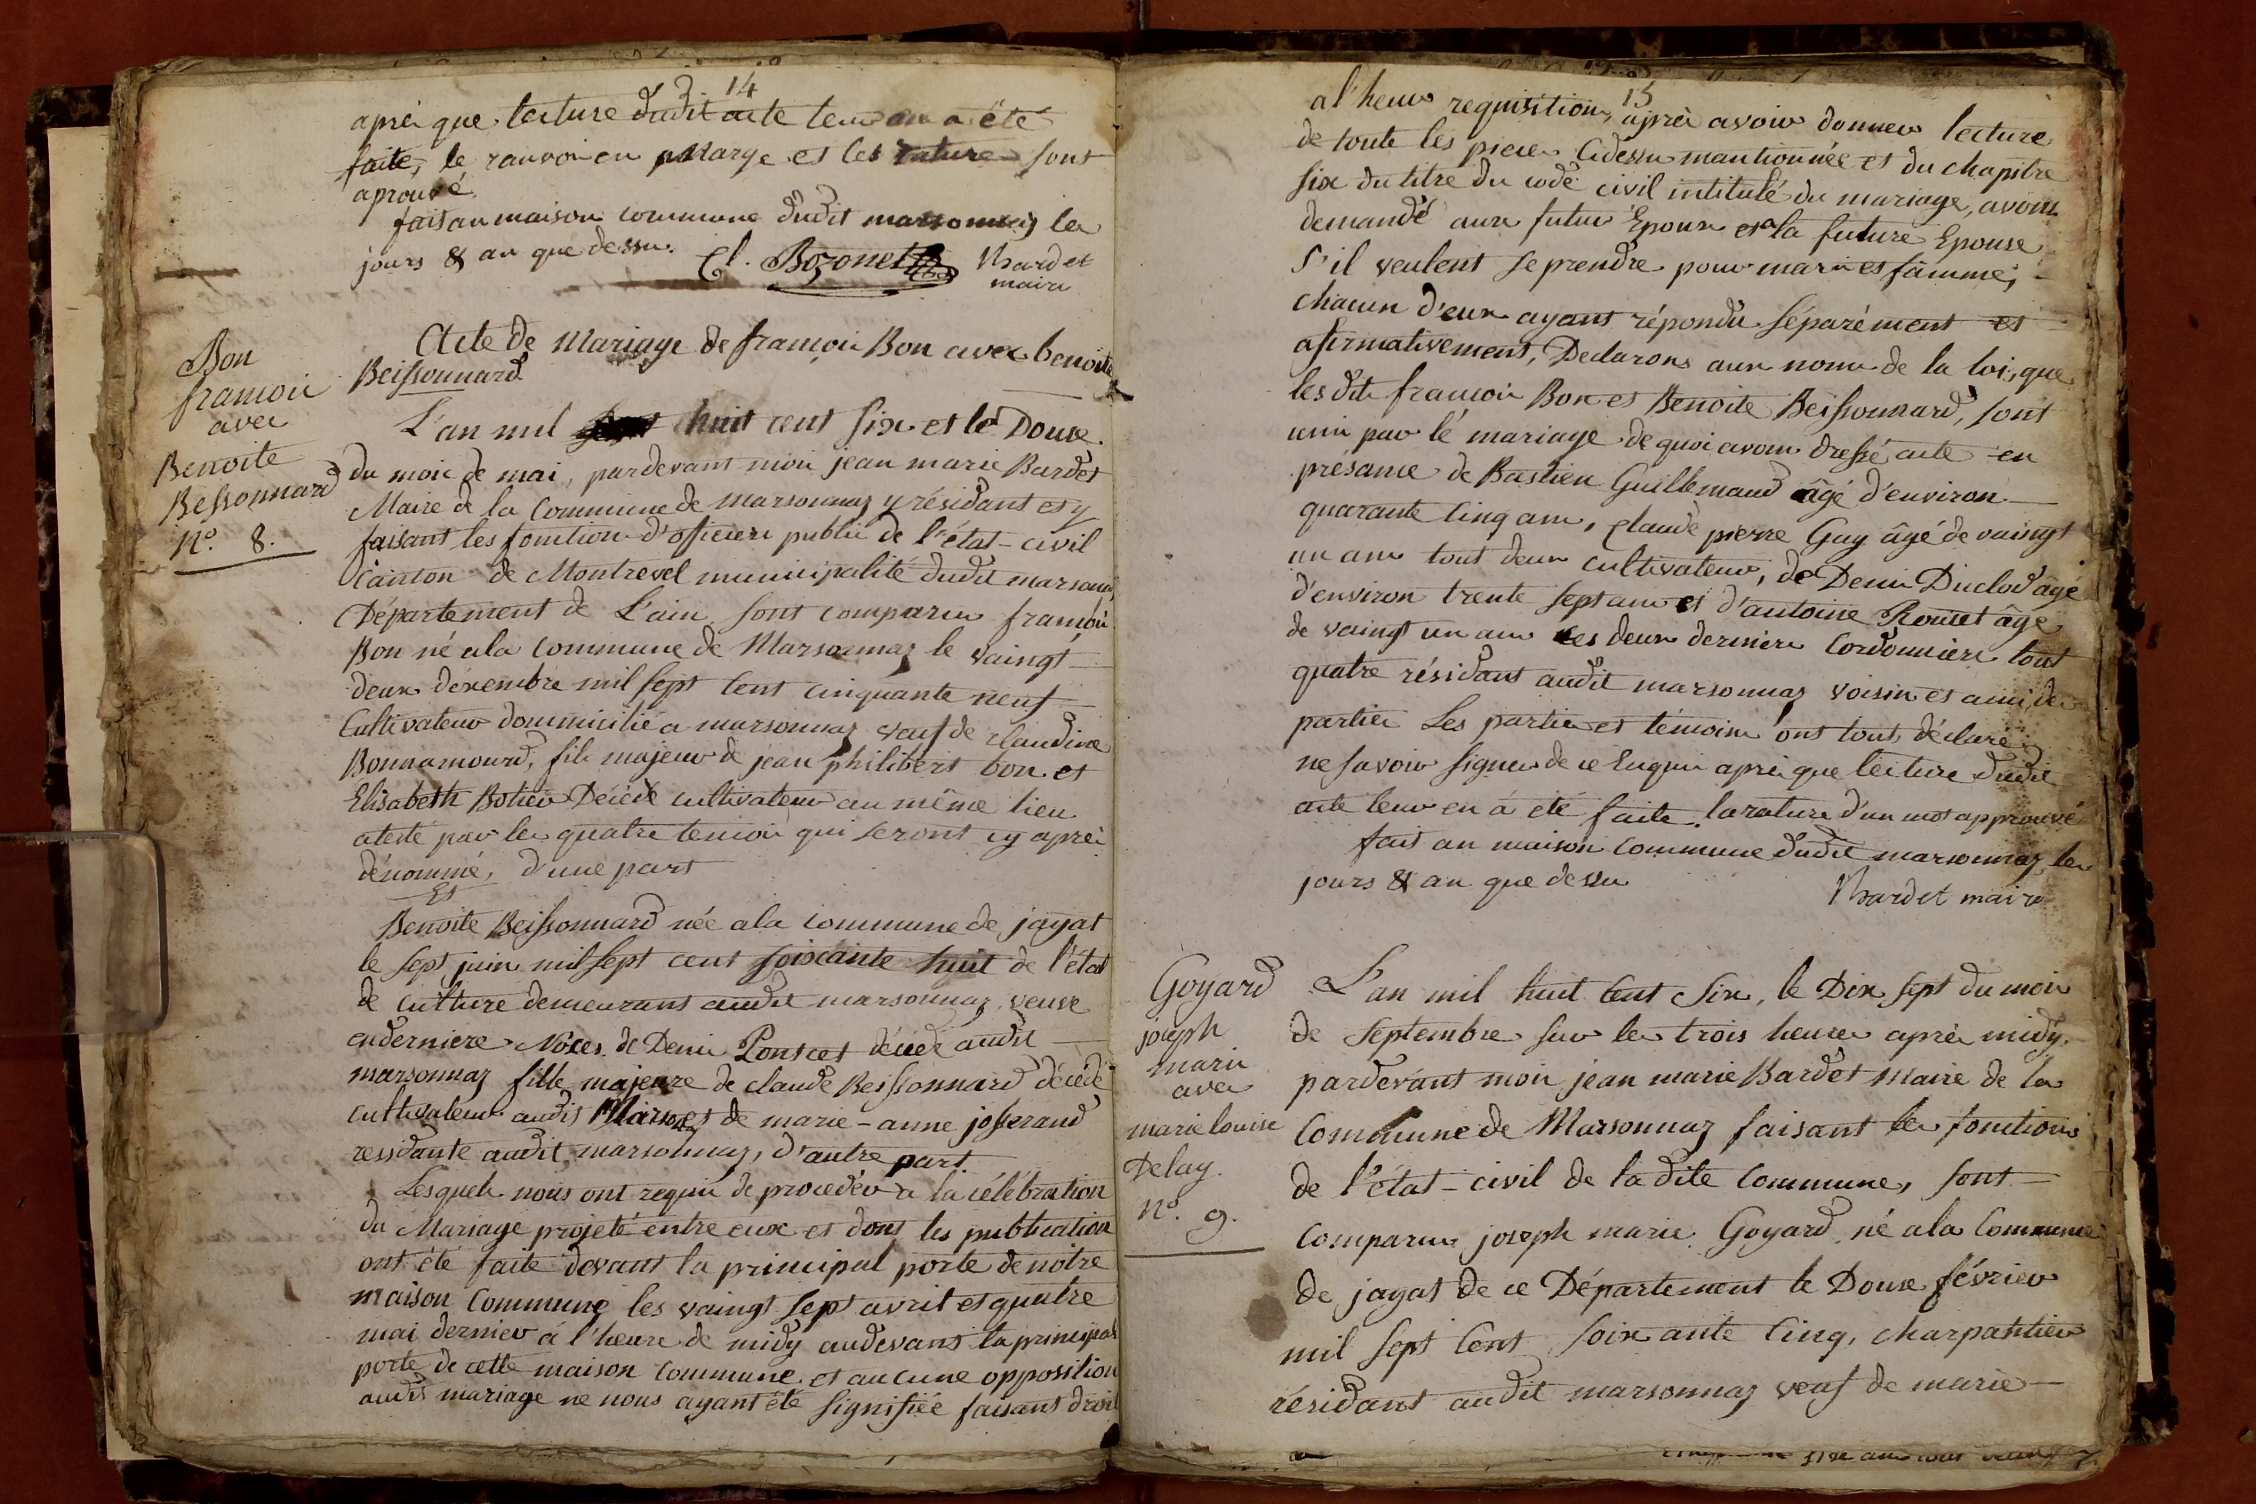 14
après que lecture dudit acte leur en a été
faite, le ranvoi en Marge et les rature sont
aprouvé.
fait an maison commune dudit marsonnas les
jours & an que dessu. Cl. Bozonet Bardet
maire
Bon
francois
avec
Benoite
Bessonnard
N.º 8.
Acte de Mariage de francois Bon avec benoite
Beissonnard
L'an mil huit cent six et le Douze
du mois de mai, pardevant moi jean marie Bardet
Maire de la Commune de marsonnas y résidant et y
faisant les fonction d'officiers public de l'état-civil
Canton de Montrevel municipalité dudit marsonnas
Département de L'ain sont comparus francois
Bon né a la commune de Marsonnas le vaingt
deux décembre mil sept cent cinquante neuf
Cultivateur dommicilié a marsonnas veuf de claudine
Bonnamourd, fils majeur de jean philibert bon et
Elisabeth Botier Décédé cultivateur au même lieu
atesté par les quatre temoin qui seront cy après
dénommé, d'une part
Et
Benoite Beissonnard née a la commune de jayat
le sept juin mil sept cent soixante huit de l'état
de culture demeurant audit marsonnas, veuve
en derniere Noces de Denis Pontet décédé audit
marsonnas fille majeure de claude Beissonnard décédé
cultivateur audit Marsonnas et de marie-anne josserand
ressidante audit marsonnas, d'autre part.
Lesquels nous ont requis de procédér a la célébration
du Mariage projeté entre eux et dont les publication
ont été faite devant la principal porte de notre
maison Commune les vaingt sept avril et quatre
mai dernier à l'heure de midy audevant la principal
porte de cette maison commune et aucune opposition
audit mariage ne nous ayant été signifiée faisant droit
15
a l'heur requisition, après avoir donner lecture
de toute les piece Cidessu mantionnée et du chapitre
six du titre du code civil intitulé du mariage, avons
demandé aux futur Epoux et a la future Epouse
s'il veulent se prendre pour mari et famme;
chacun d'eux ayant répondu séparément et
afirmativement, Declarons aux nom de la loi, que
les dits francois Bon et Benoite Beissonnard, sont
uni par lé mariage de quoi avons dressé acte en
présance de Bastien Guillemaud âgé d'environ
quarante cinq ans, claude pierre Guy âgé de vaingt
un ans tout deux cultivateur, de Denis Duclod âgé
d'environ trente sept ans et d'antoine Rouset âgé
de vaingt un ans les deux derniers Cordonniers tout
quatre résidant audit marsonnas voisin et ami des
parties Les partie et témoins ont tout déclaré
ne savoir signer de ce Enquis après que lecture dudit
acte leur en à été faite. la rature d'un mot approuvé
fait an maison commune dudit marsonnas les
jours & an que dessu
Bardet maire
Goyard
joseph
marie
avec
marie louise
Delay.
Nº. 9.
L'an mil huit cent six, le Dix sept du mois
de septembre sur les trois heures après midy.
pardevant moi jean marie Bardet Maire de la
Commune de Marsonnas faisant les fonctions
de l'état-civil de la dite Commune, sont
comparus joseph marie Goyard né a la Commune
de jayat de ce Département le Douze février
mil sept Cent soixante cinq, charpantier
résidant audit marsonnas veuf de marie